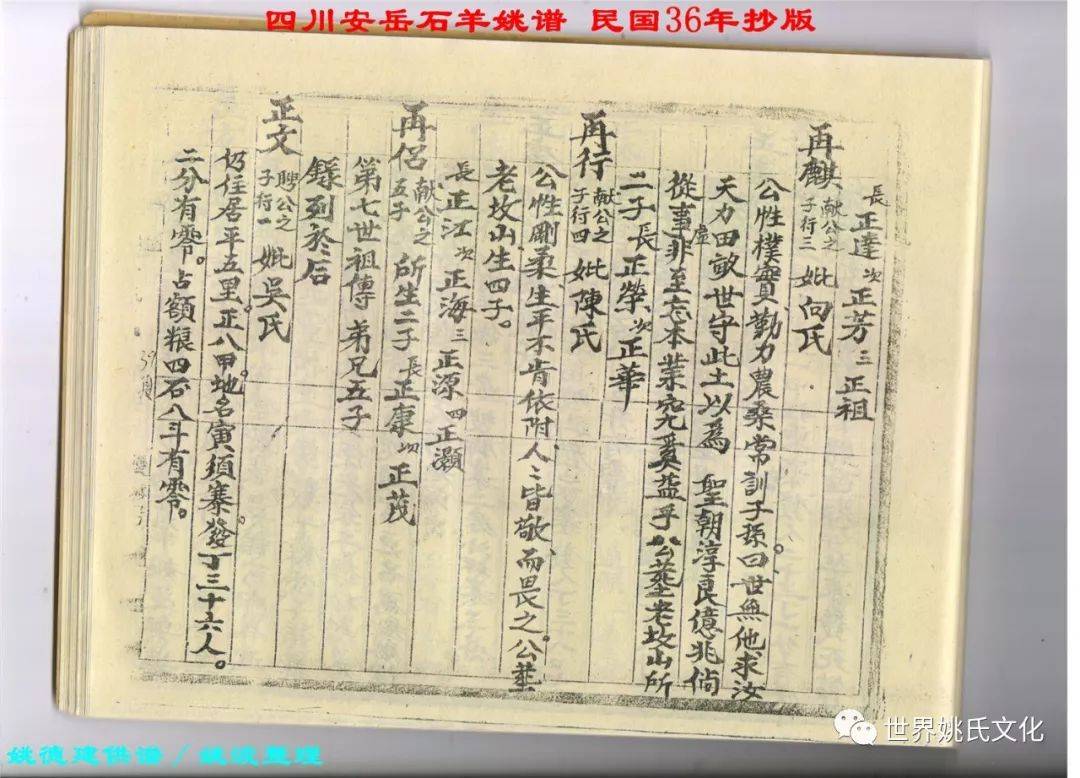 四川安岳石羊姚谱 民国36年抄版
長正達次正芳三正祖
再麒 献公之子行三 妣向氏
公性樸實勤力農桑常訓子孫曰世無他求汝
天力田畝世守此土以為 聖朝淳良億兆倘
從事非虛至忘本業究奚益乎公塟老坟山所
二子長正榮次正華
再行 献公之子行四 妣陳氏
公性剛柔生平不肯依附人〻皆敬而畏之。公塟
老坟山生四子。
長正江次正海三正源四正灝
再侣 献公之五子 所生二子長正康次正茂
第七世祖傳 弟兄五子
錄列於后
正文 聘公之子行一 妣吴氏
仍住居平五里。正八甲。地名寅須寨。發丁三十六人。
二分有零。占額粮四石八斗有零。
姚德建供谱/姚波整理
世界姚氏文化